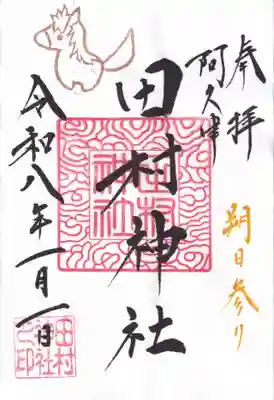 奉拝
阿久津
朔日参り
田村神社
令和八年一月一日
田村
神社
田村
神社
之印